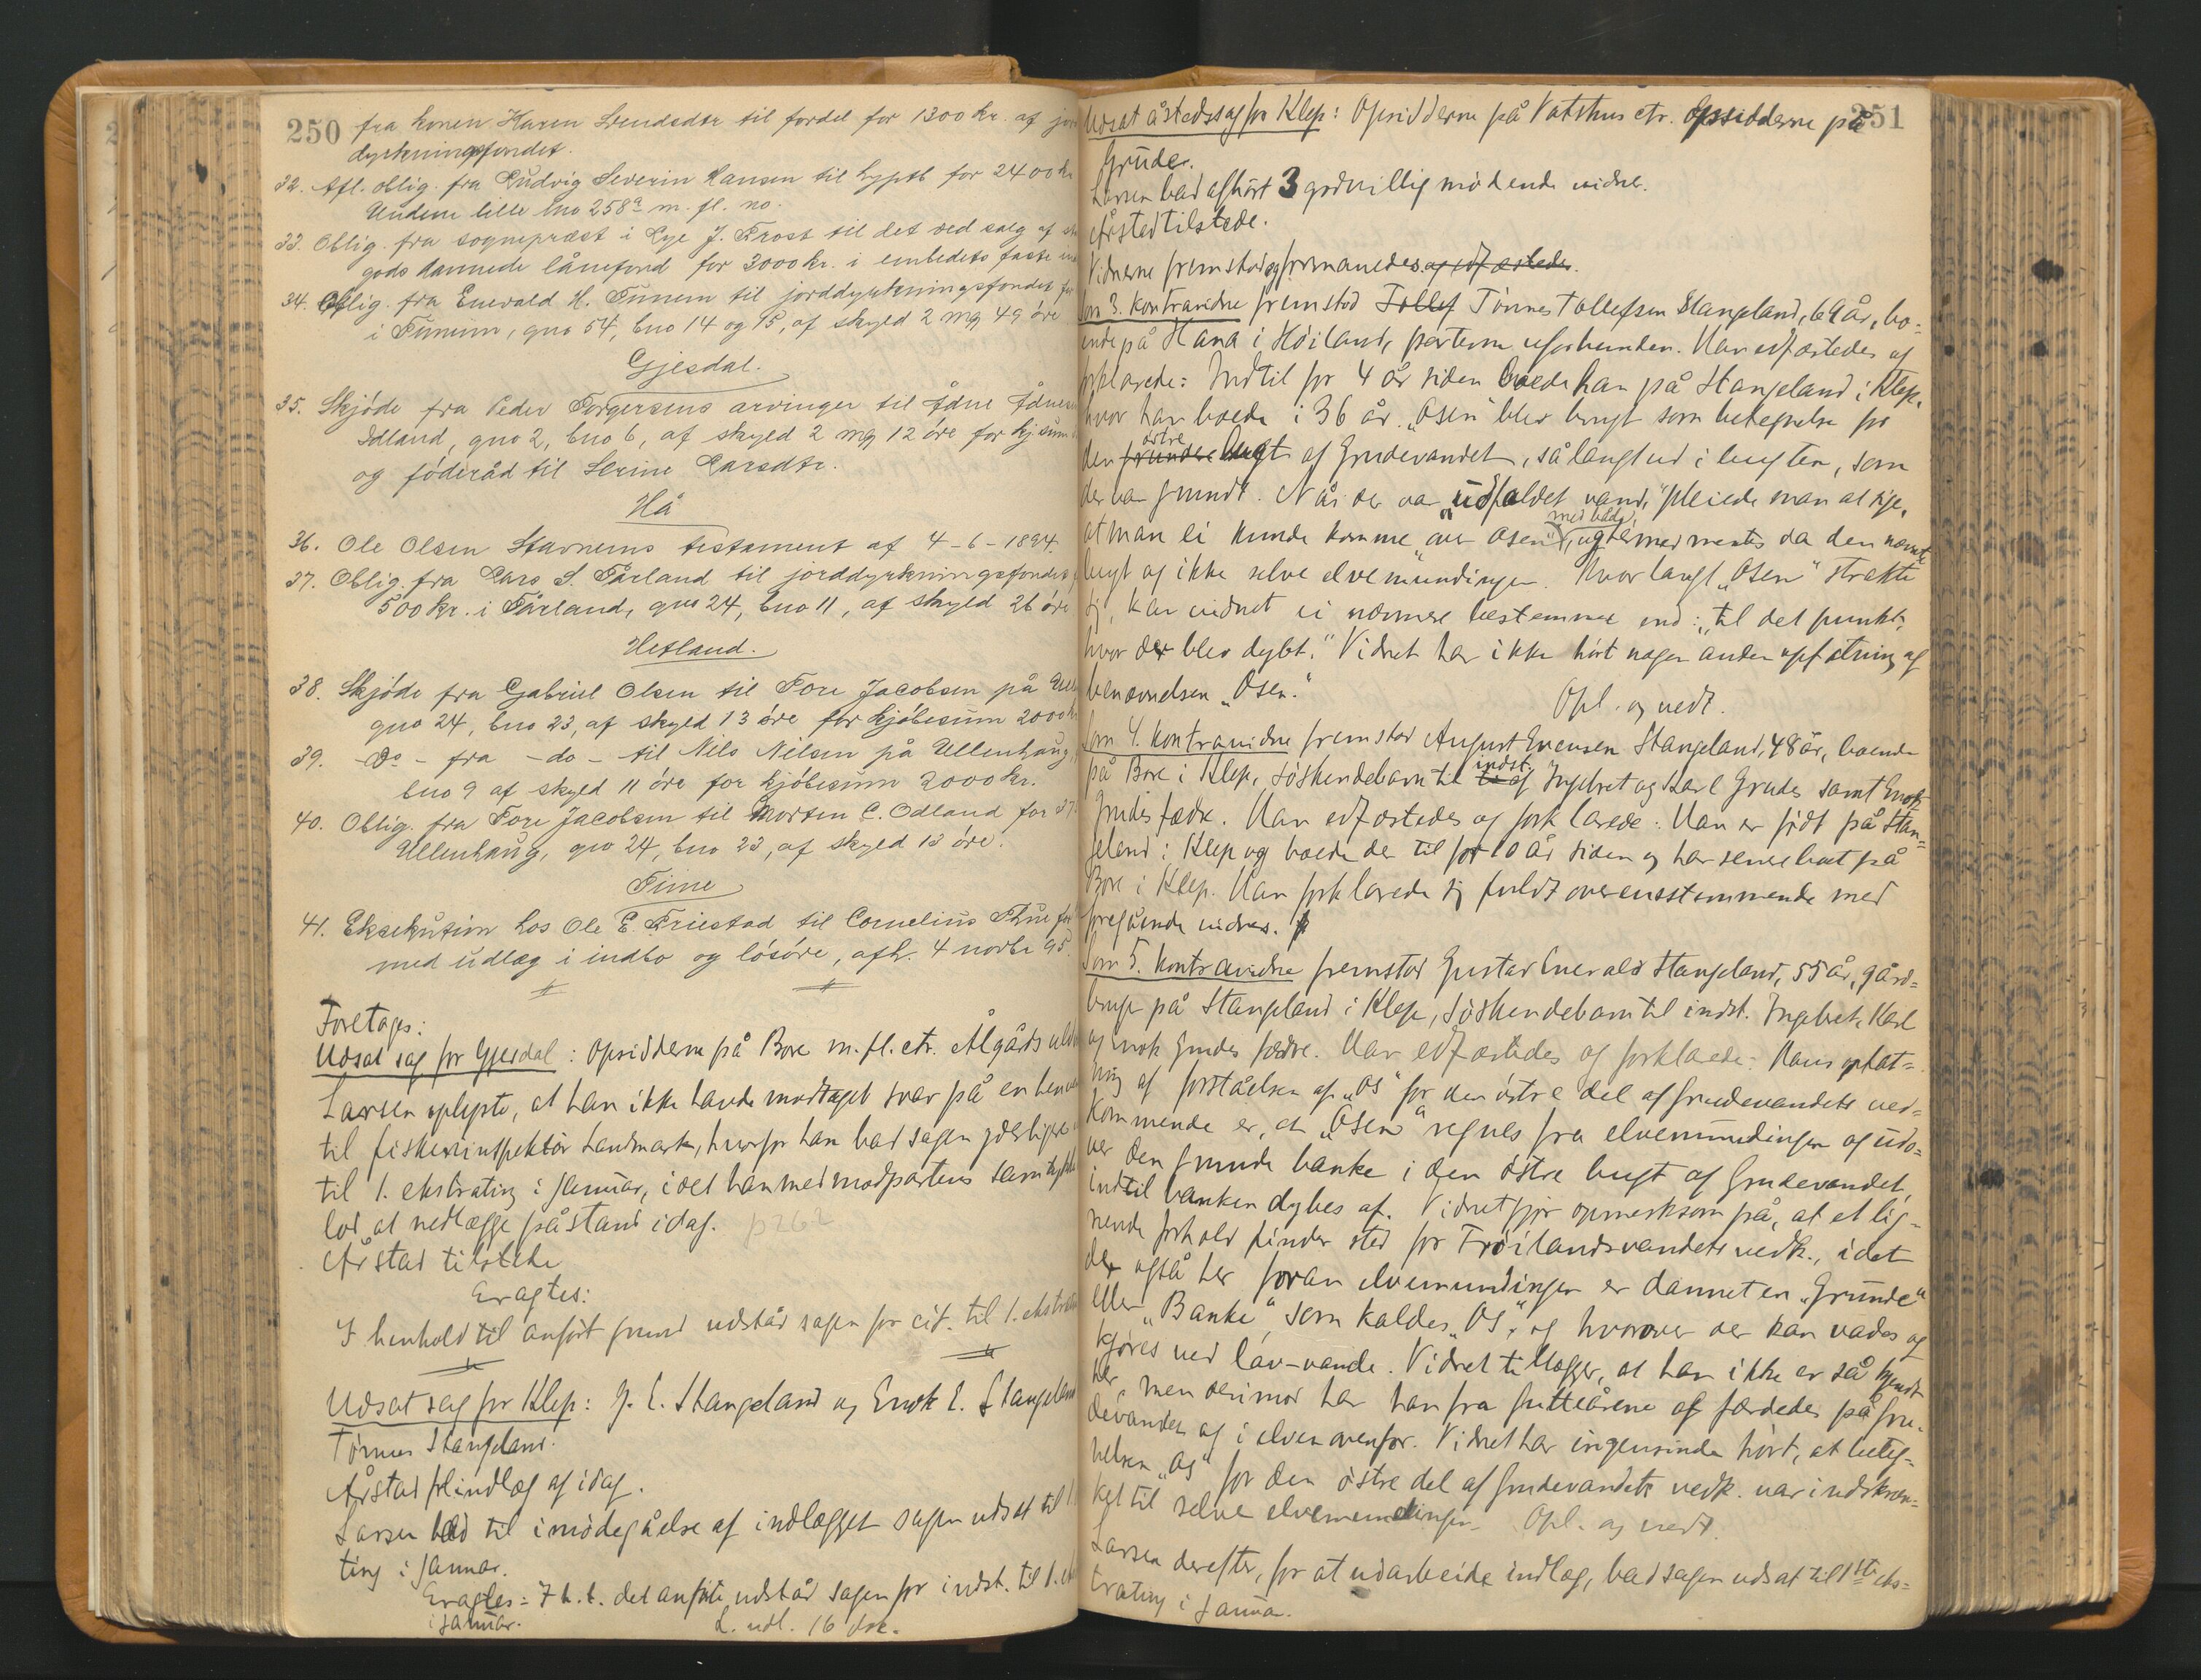 250 fra konen Karen Svendsdtr til fordel for 1300 kr. af jord
dyrkningsfondet.
32. Afl. oblig. fra Ludvig Severin Hansen til hyptb for 2400 kr
Undem lille bno 258ª m. fl. no.
33. Oblig. fra sognepræst i Lye J. Frost til det ved salg af
gods dannede lånefond for 3000 kr. i embedets faste
34. Oblig. fra Enevald H. Tunem til jorddyrkningsfondet for
i Tunem, gno 54, bno 14 og 15, af skyld 2 mg 49 øre
Gjesdal.
35. Skjöde fra Peder Torgersens arvinger til Ådne Ådnesen
Idland, gno 2, bno 6, af skyld 2 mg 12 öre for kj.sum
og föderåd til Serine Larsdtr.
Hå
36. Ole Olsen Stavnems testament af 4-6-1894.
37. Oblig. fra Lars S. Tårland til jorddyrkningsfondet
500 kr. i Tårland, gno 24, bno 11, af skyld 26 öre
Hetland.
38. Skjöde fra Gabriel Olsen til Tore Jacobsen på Ull
gno 24, bno 23, af skyld 13 øre for kjöbesum 2000 k
39. - Do - fra - do - til Nils Nilsen på Ullenhaug,
bno 9 af skyld 11 öre for kjöbesum 2000 kr.
40. Oblig. fra Tore Jacobsen til Morten C. Odland for
Ullenhaug, gno 24, bno 23, af skyld 13 öre.
Time
41. Eksekution hos Ole E. Friestad til Cornelius Thu for
med udlæg i indbo og lösöre, afh. 4 novbr 95.
Foretages:
Udsat sag for Gjesdal: Opsidderne på Bore m. fl. ctr. Ålgårds uld
Larsen oplyste, at han ikke havde modtaget svar på en henv
til fiskeriinspektör Landmark, hvorfor han bad sagen yderligere
til 1. ekstrating i januar, idet han med modpartens samtykke
lod at nedlægge påstand idag. p 262
Årstad tilstede
Eragtes:
I henhold til anfört grund udstår sagen for cit. til 1. ekstrat
Udsat sag for Klep: J. E. Stangeland og Enok E. Stangeland
Tønnes Stangeland.
Årstad fr. indlæg af idag.
Larsen bad til imödegåelse af indlægget sagen udsat til 1
ting i januar.
Eragtes: I h. t. det anförte udstår sagen for indst. til 1. e
i januar. L. udl. 16 dec.
251
Udsat åstedssag for Klep: Opsidderne på Vatshus ctr. Opsidderne på
Grude.
Larsen bad afhört 3 godvillig mödende vidner.
Årstad tilstede.
Vidnerne fremstod og formanedes og edfæstedes.
Som 3. kontravidne fremstod Tollef Tönnes Tollefsen Stangeland, 69 år, bo-
ende på Hana i Höiland, parterne uforbunden. Han edfæstedes og
forklarede: Indtil for 4 år siden boede han på Stangeland i Klep,
hvor han boede i 36 år. "Osen" blev brugt som betegnelse for
den grundere östre bugt af Grudevandet, så langt ud i bugten, som
der var grundt. Når der var "udfaldet vand," pleiede man at sige,
at man ei kunde komme "over Osen" med båd, og dermed mentes da den nævnte
bugt og ikke selve elvemundingen. Hvor langt "Osen" strakte
sig, kan vidnet ei nærmere bestemme end: "til det punkt,
hvor der blev dybt." Vidnet har ikke hört nogen anden opfatning af
benævnelsen "Osen."
Opl. og vedt.
Som 4. kontravidne fremstod August Evensen Stangeland, 48 år, boende
på Bore i Klep, söskendebarn til indst. Ingebret og Karl Grudes samt Enok
Grudes fædre. Han edfæstedes og forklarede: Han er födt på Stan-
geland i Klep og boede der til for 10 år siden og har senere boet på
Bore i Klep. Han forklarede sig fuldt overensstemmende med
foregående vidne.
Som 5. kontravidne fremstod Gustav Enevald Stangeland, 55 år, gård-
bruger på Stangeland i Klep, söskendebarn til indst. Ingebret, Karl
og Enok Grudes fædre. Han edfæstedes og forklarede: Hans opfat-
ning af forståelsen af "Os" for den östre del af Grudevandets ved-
kommende er, at "Osen" regnes fra elvemundingen og udo-
ver den grunde banke i den östre bugt af Grudevandet,
indtil banken dybes af. Vidnet gjør opmerksom på, at et lig-
nende forhold finder sted for Fröilandsvandets vedk., idet
der også her foran elvemundingen er dannet en "Grunde"
eller "Banke", som kaldes "Os", og hvorover der kan vades og
kjöres ved lav-vande. Vidnet tillægger, at han ikke er så kjendt
her, men derimod har han fra gutteårene af færdedes på Gru-
devandet og i elven ovenfor. Vidnet har ingensinde hört, at beteg-
nelsen "Os" for den östre del af Grudevandets vedk. var indskræn-
ket til selve elvemundingen. Opl. og vedt.
Larsen derefter, for at udarbeide indlæg, bad sagen udsat til 1ste eks-
trating i januar.